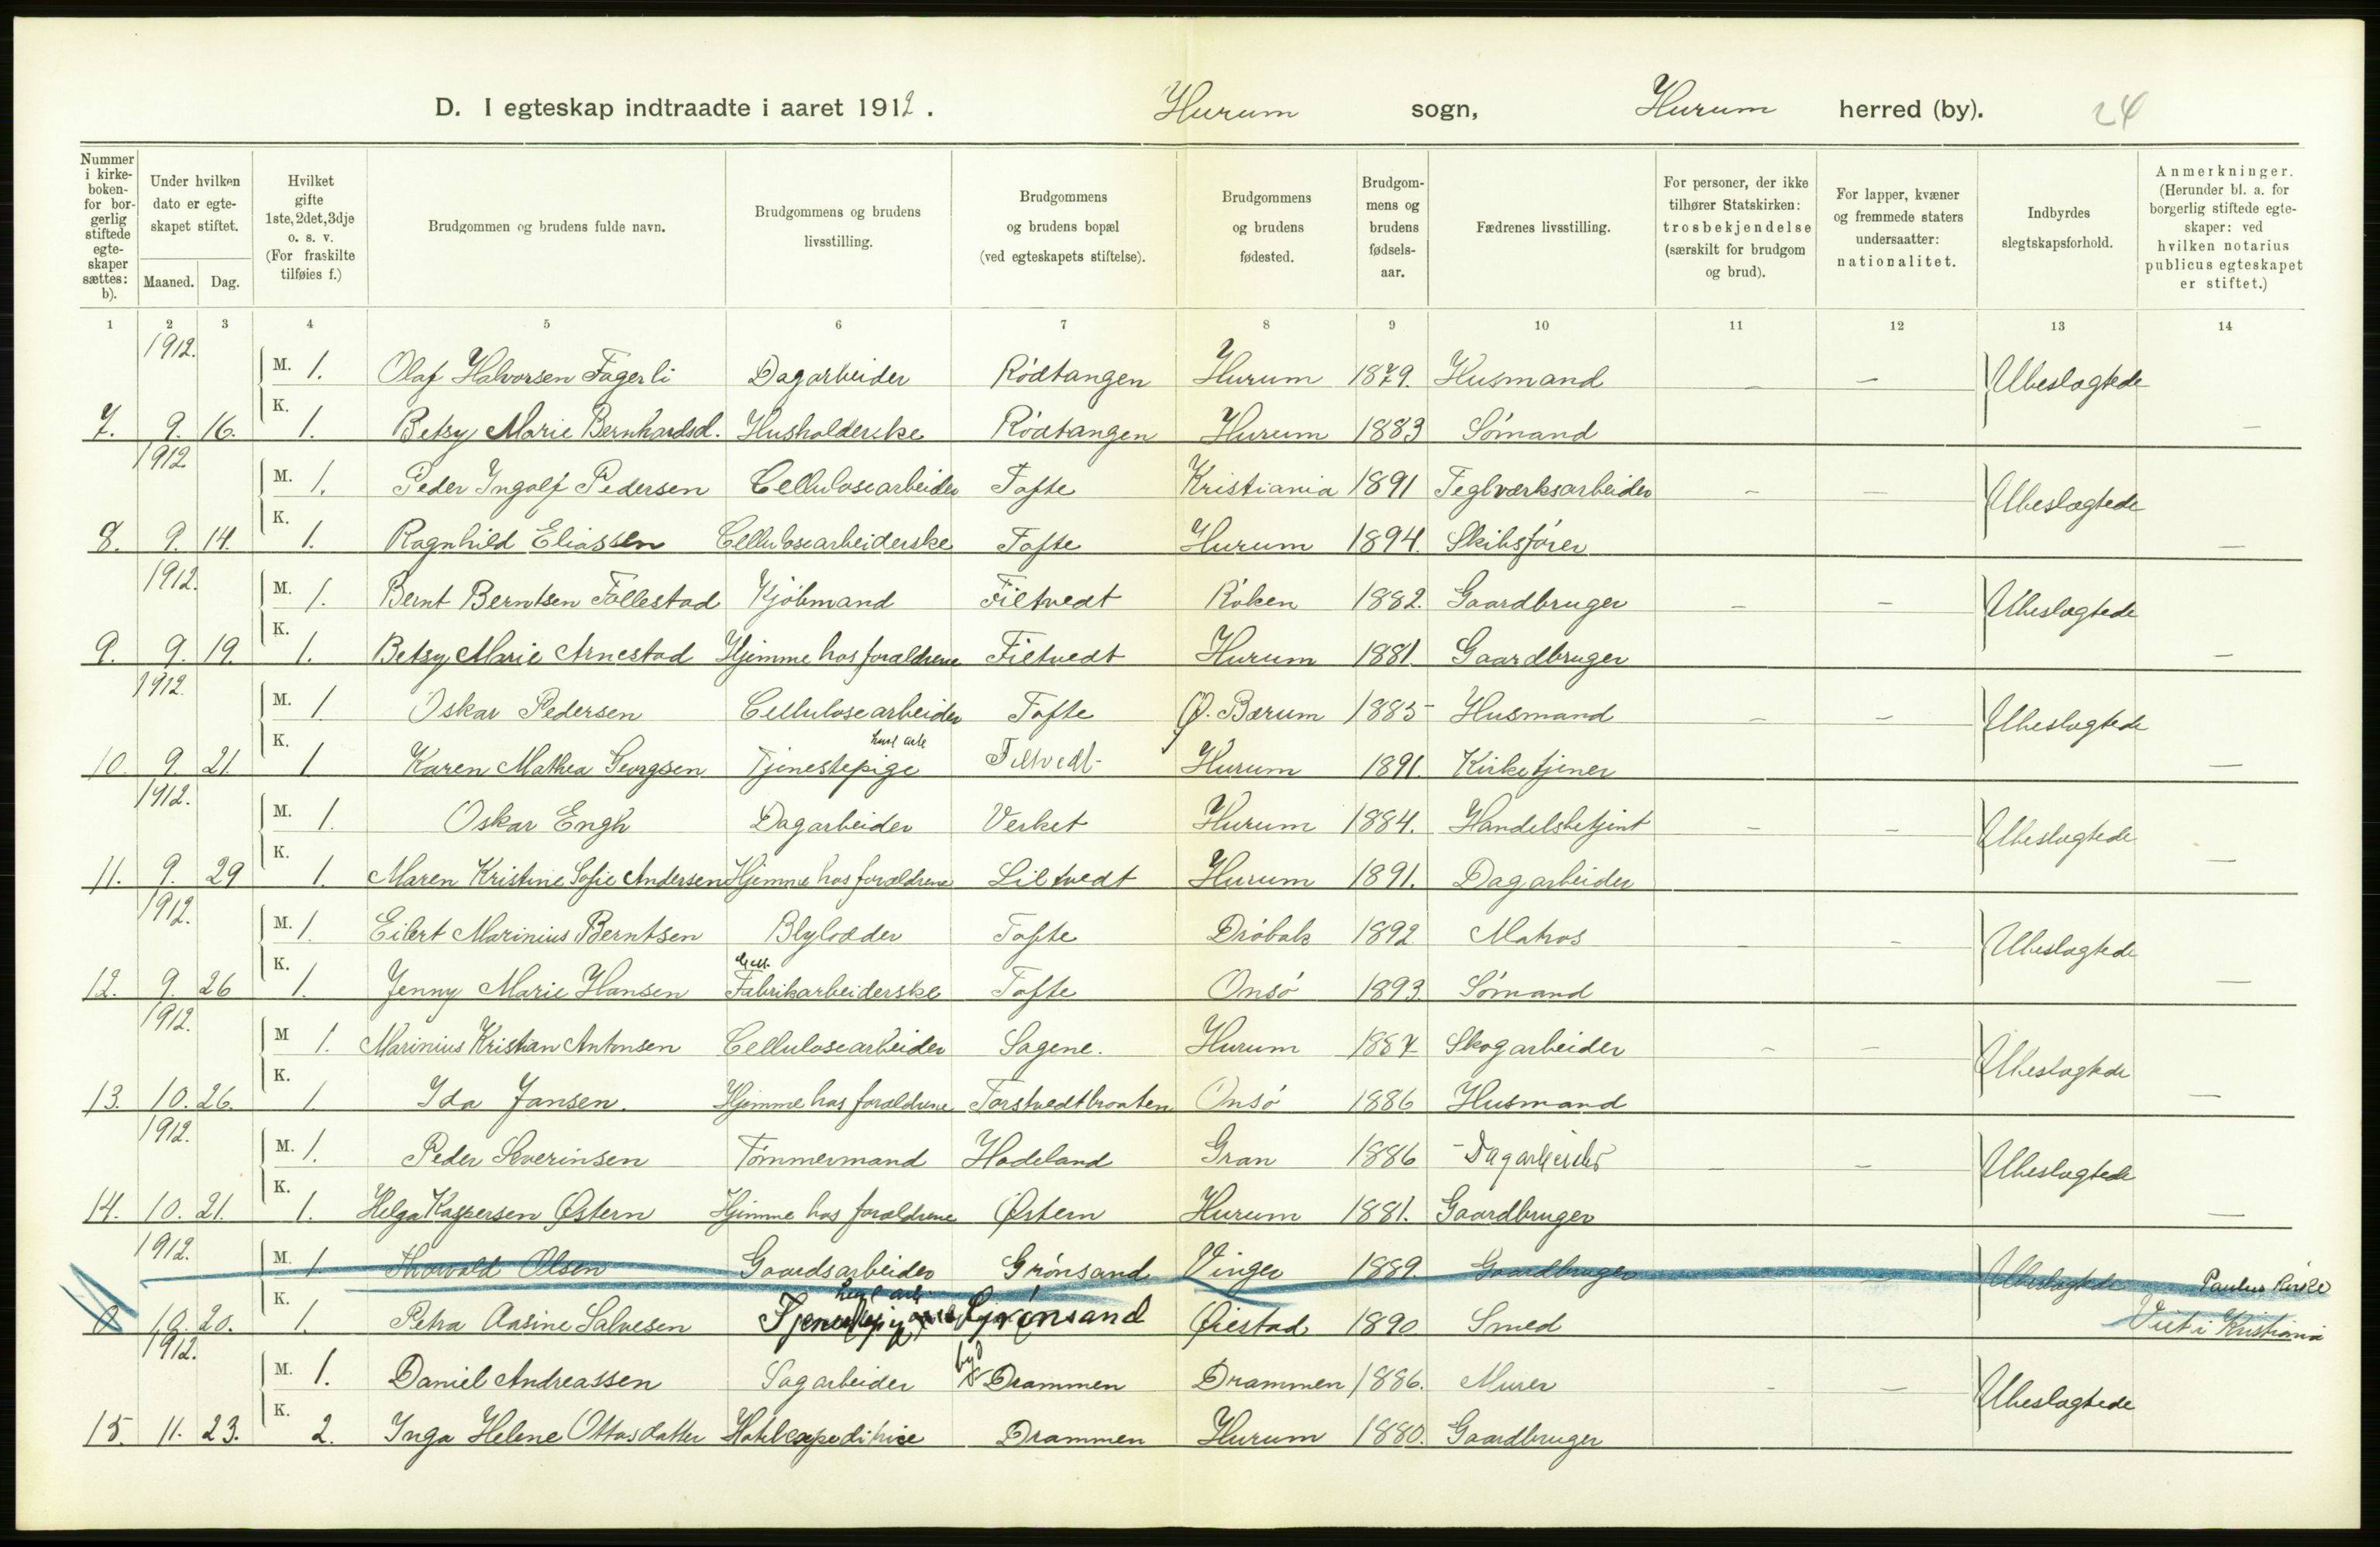 D. I egteskap indtraadte i aaret 1912. Hurum sogn, Hurum herred (by). 24
Nummer i kirke-boken- for bor-gerlig stiftede egte-skaper sættes: b). Under hvilken dato er egte-skapet stiftet. Maaned. Dag. Hvilket gifte 1ste, 2det, 3dje o. s. v. (For fraskilte tilføies f.) Brudgommen og brudens fulde navn. Brudgommens og brudens livsstilling. Brudgommens og brudens bopæl (ved egteskapets stiftelse). Brudgommens og brudens fødested. Brudgom-mens og brudens fødsels-aar. Fædrenes livsstilling. For personer, der ikke tilhører Statskirken: trosbekjendelse (særskilt for brudgom og brud). For lapper, kvæner og fremmede staters undersaatter: nationalitet. Indbyrdes slegtskapsforhold. Anmerkninger. (Herunder bl. a. for borgerlig stiftede egte-skaper: ved hvilken notarius publicus egteskapet er stiftet.)
1 2 3 4 5 6 7 8 9 10 11 12 13 14
1912. M. 1. Olaf Halvorsen Fagerli Dagarbeider Rödtangen Hurum 1879. Husmand — — Ubeslægtede
7. 9. 16. K. 1. Betsy Marie Bernhardsd. Husholderske Rödtangen Hurum 1883 Sömand —
1912 M. 1. Peder Ingolf Pedersen Cellulosearbeider Tofte Kristiania 1891 Teglværksarbeider — — Ubeslægtede
8. 9. 14. K. 1. Ragnhild Eliassen Cellulosearbeiderske Tofte Hurum 1894. Skibsförer —
1912. M. 1. Bernt Berntsen Follestad Kjöbmand Filtvedt Röken 1882. Gaardbruger — — Ubeslægtede
9. 9. 19. K. 1. Betsy Marie Arnestad Hjemme hos forældrene Filtvedt Hurum 1881. Gaardbruger —
1912. M. 1 Oskar Pedersen Cellulosearbeider Tofte Ø. Bærum 1885 Husmand — — Ubeslægtede
10. 9. 21. K. 1 Karen Mathea Georgsen Tjenestepige Filtvedt Hurum 1891. Kirketjener —
1912. M. 1. Oskar Engh Dagarbeider Verket Hurum 1884. Handelsbetjent — — Ubeslægtede
11. 9. 29 K. 1. Maren Kristine Sofie Andersen Hjemme hos forældrene Liltvedt Hurum 1891. Dagarbeider —
1912. M. 1. Eilert Marinius Berntsen Blylodder Tofte Dröbak 1892 Matros — — Ubeslægtede
12. 9. 26 K. 1. Jenny Marie Hansen Fabrikarbeiderske Tofte Onsö 1893. Sömand —
1912. M 1. Marinius Kristian Antonsen Cellulosearbeider Sagene. Hurum 1887 Skogarbeider — — Ubeslægtede
13. 10. 26. K. 1. Ida Jansen. Hjemme hos forældrene Torstvedtbraaten Onsö 1886 Husmand —
1912. M. 1. Peder Severinsen Tömmermand Hadeland Gran 1886 - Dagarbeider — — Ubeslægtede
14. 10. 21. K. 1. Helga Kaspersen Östern Hjemme hos forældrene Östern Hurum 1881. Gaardbruger —
1912. M. 1. Thorvald Olsen Gaardsarbeider Grönsand Vinger 1889. Gaardbruger — Ubeslægtede Paulus Kirke
0 10. 20. K. 1. Petra Aasine Salvesen Tjenestepige Grönsand Öiestad 1890 Smed Viet i Kristiania
1912. M. 1. Daniel Andreassen Sagarbeider Drammen Drammen 1886. Murer - — Ubeslægtede
15. 11. 23. K. 2. Inga Helene Ottosdatter Hotelexpeditrice Drammen Hurum 1880. Gaardbruger